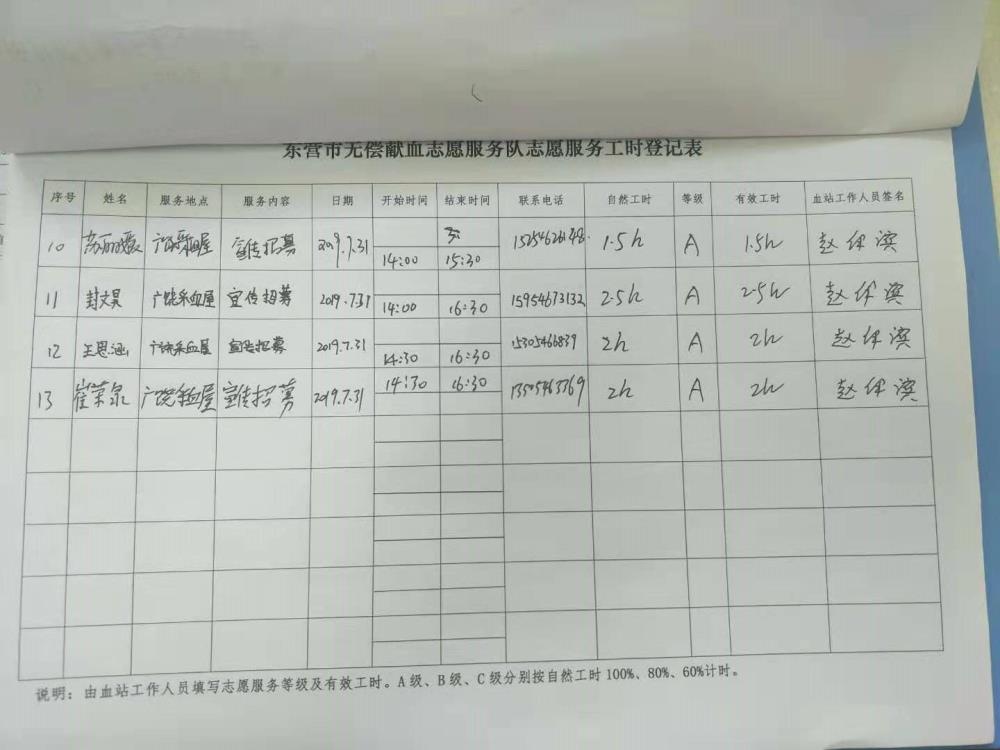 东营市无偿献血志愿服务队志愿服务工时登记表
序号 姓名 服务地点 服务内容 日期 开始时间 结束时间 联系电话 自然工时 等级 有效工时 血站工作人员签名
10 广饶采血屋 宣传招募 2019.7.31 14:00 15:30 1.5h A 1.5h
11 封文昊 广饶采血屋 宣传招募 2019.7.31 14:00 16:30 15954673132 2.5h A 2.5h
12 王思涵 广饶采血屋 宣传招募 2019.7.31 14:30 16:30 15305466839 2h A 2h
13 崔荣泉 广饶采血屋 宣传招募 2019.7.31 14:30 16:30 2h A 2h
说明：由血站工作人员填写志愿服务等级及有效工时。A级、B级、C级分别按自然工时100%、80%、60%计时。